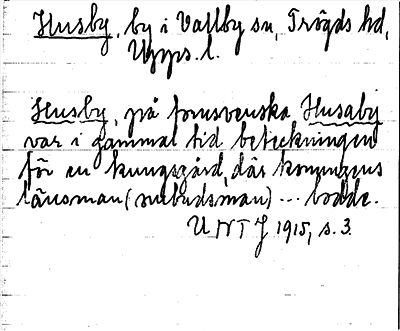 Husby, by i Vallby sn, Trögds hd,
Upps. l.
Husby, på fornsvenska Husaby
var i gammal tid beteckningen
för en kungsgård, där konungens
länsman (ombudsman) ... bodde.
UNT J 1915, s. 3.